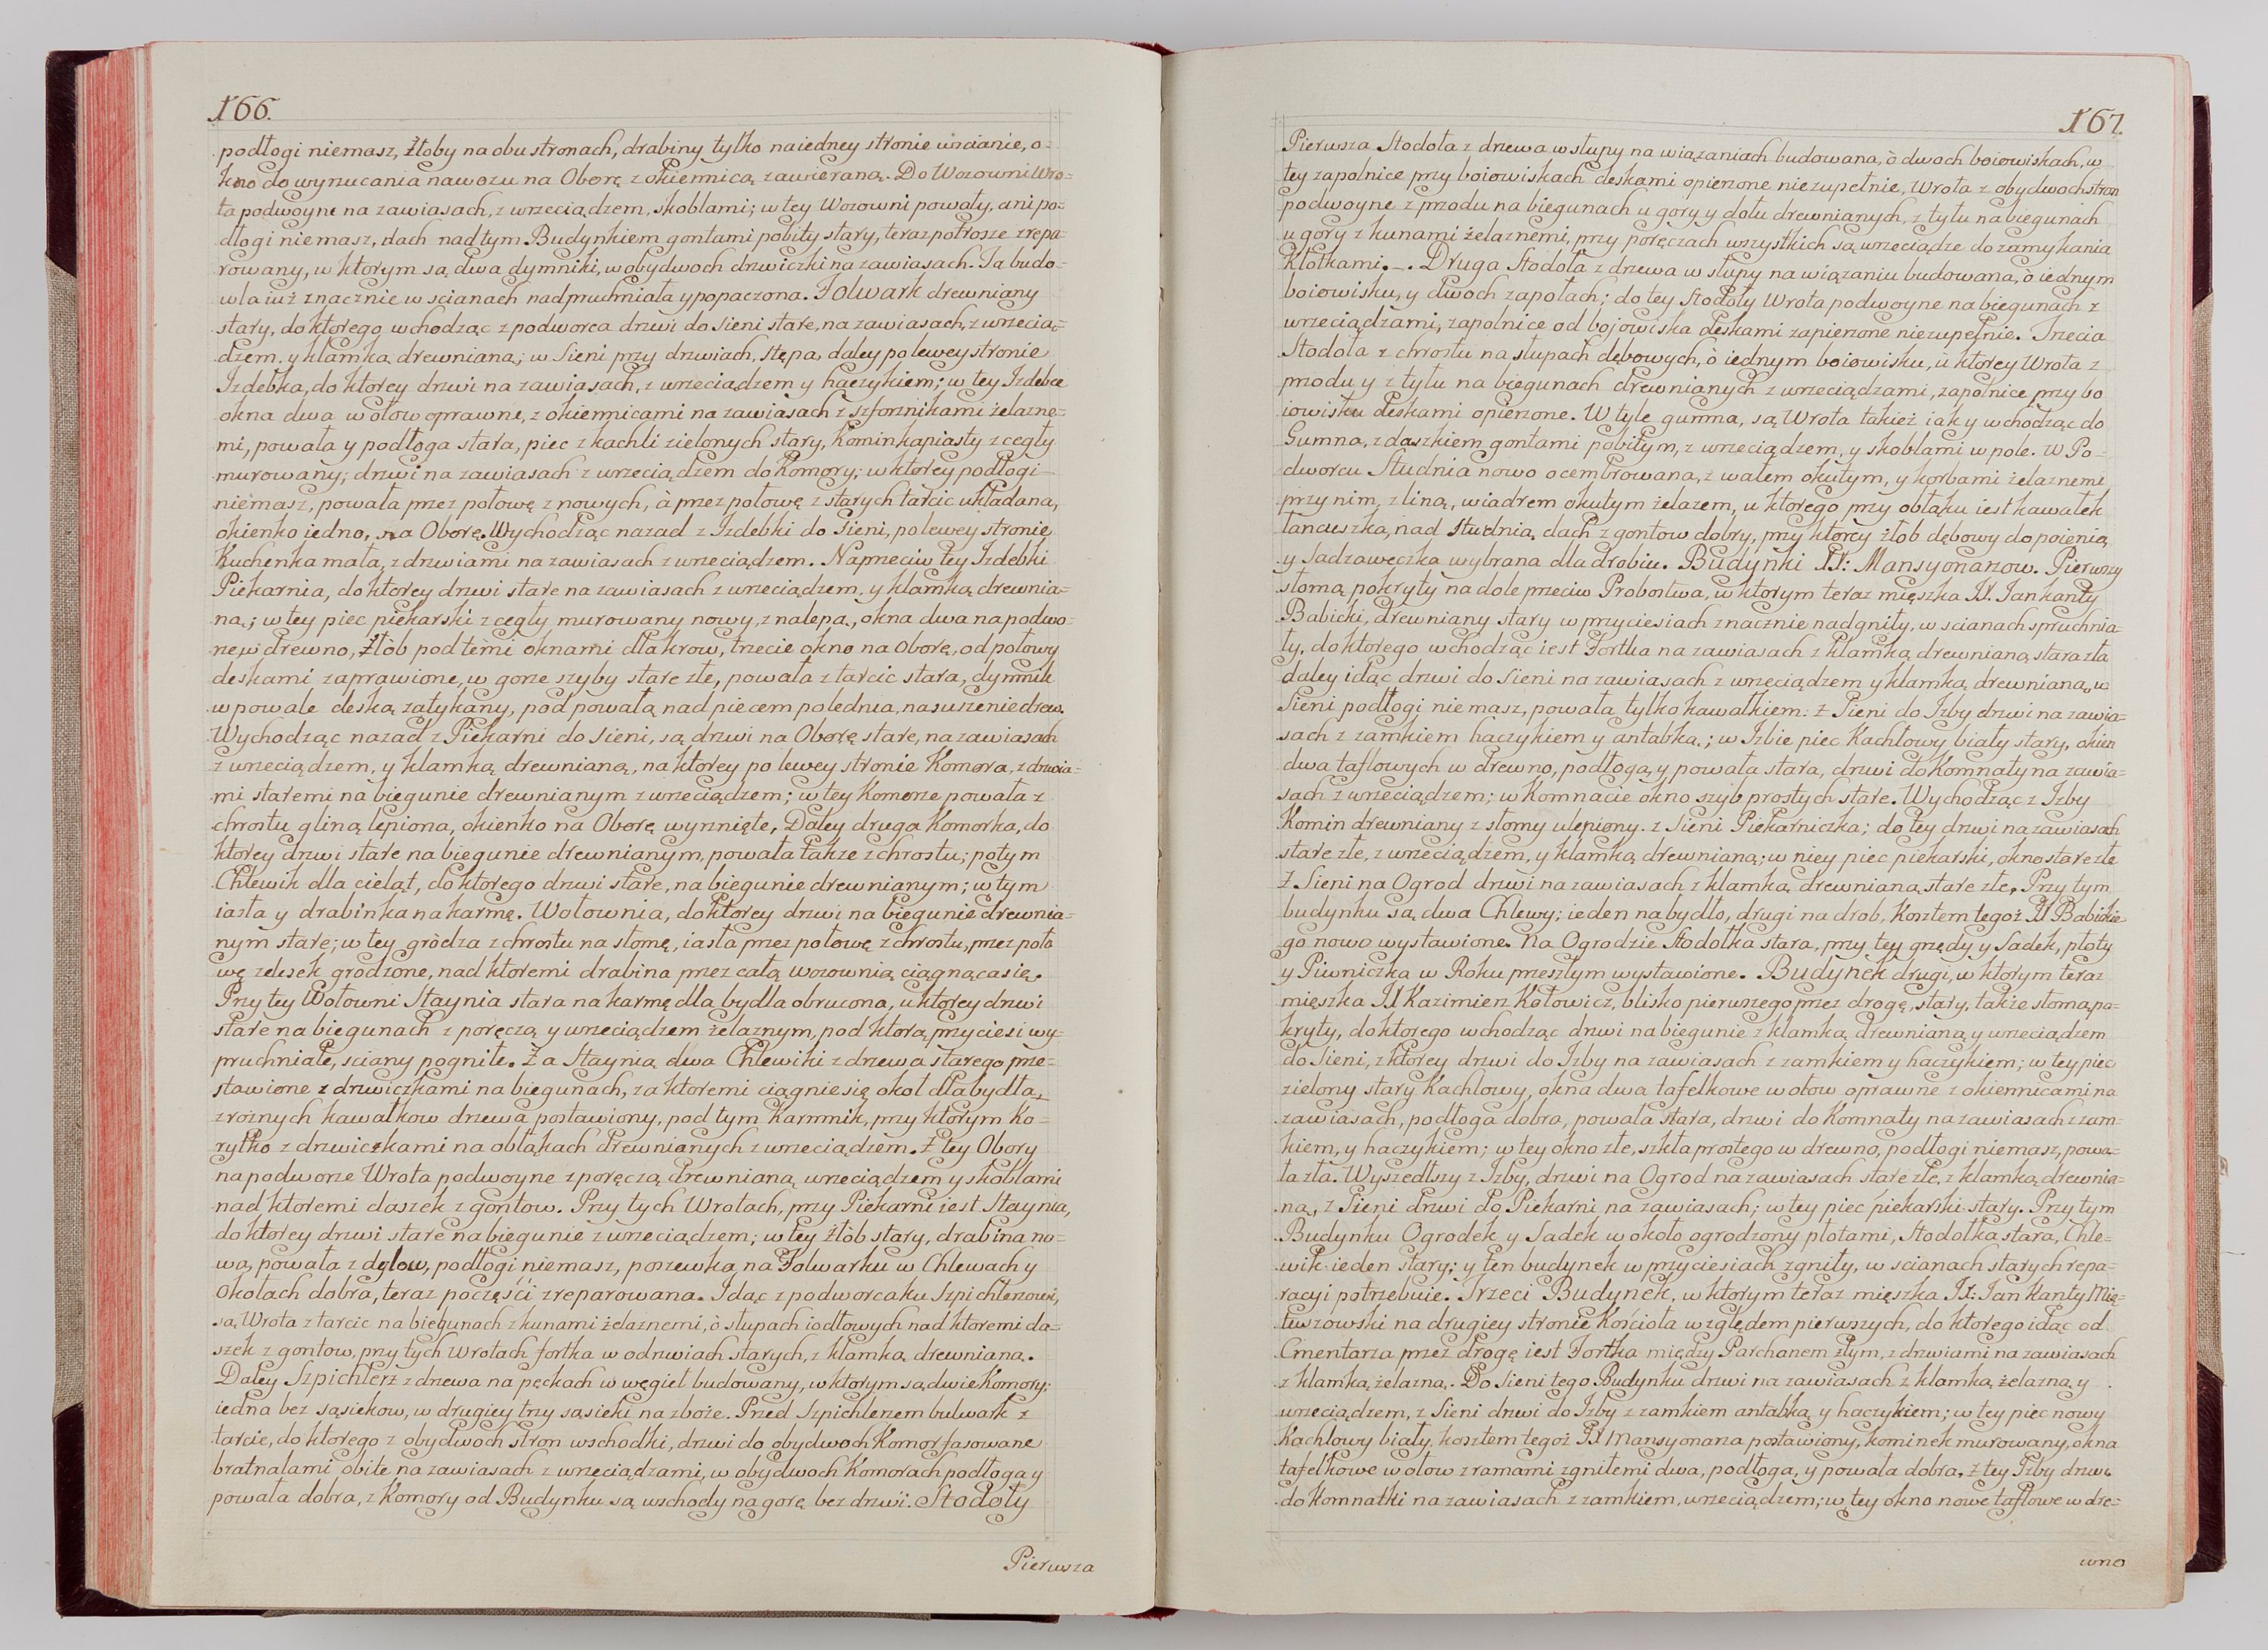 166.
podłogi niemasz, Żłoby na obu stronach, drabiny tylko na iedney stronie wścianie, o=
kno do wyrzucania nawozu na Oborę z okiennicą zawieraną. Do Wozowni Wro=
ta podwoyne na zawiasach, z wrzeciądzem, skoblami; w tey Wozowni powały, ani po=
dłogi niemasz, dach nad tym Budynkiem gontami pobity stary, teraz potrosze zrepa=
rowany, w ktorym są dwa dymniki, w obydwoch drzwiczki na zawiasach. Ta budo=
wla iuż znacznie w scianach nadpruchniała y popaczona. Folwark drewniany
stary, do ktorego wchodząc z podworca drzwi do Sieni stare, na zawiasach, z wrzecią=
dzem, y klamką drewnianą; w Sieni przy drzwiach, Stępa, daley po lewey stronie
Izdebka, do ktorey drzwi na zawiasach, z wrzeciądzem y haczykiem; w tey Izdebce
okna dwa w ołow oprawne, z okiennicami na zawiasach z szforznikami żelazne=
mi, powała y podłoga stara, piec z kachli zielonych stary, Kominkapiasty z cegły
murowany; drzwi na zawiasach z wrzeciądzem do Komory; w ktorey podłogi
niemasz, powała przez połowę z nowych, à przez połowę z starych tarcic układana,
okienko iedno, na Oborę. Wychodząc nazad z Izdebki do Sieni, po lewey stronie
Kuchenka mała, z drzwiami na zawiasach z wrzeciądzem. Naprzeciw tey Izdebki
Piekarnia, do ktorey drzwi stare na zawiasach z wrzeciądzem, y klamką drewnia=
ną; w tey piec piekarski z cegły murowany nowy, z nalepą, okna dwa na podwo=
rze w drewno, Żłòb pod temi oknami dla krow, trzecie okno na Oborę, od połowy
deskami zaprawione, w gorze szyby stare złe, powała z tarcic stara, dymnik
w powale deską zatykany, pod powałą nad piecem polednia, na suszenie drew.
Wychodząc nazad z Piekarni do Sieni, są drzwi na Oborę stare, na zawiasach
z wrzeciądzem, y klamką drewnianą, na ktorey po lewey stronie Komora, z drzwia=
mi staremi na biegunie drewnianym z wrzeciądzem; w tey Komorze powała z
chrostu gliną lepiona, okienko na Oborę wyrznięte, Daley druga Komorka, do
ktorey drzwi stare na biegunie drewnianym, powała także z chrostu; potym
Chlewik dla cieląt, do ktorego drzwi stare, na biegunie drewnianym; w tym
iasła y drabinka na karmę. Wołownia, do ktorey drzwi na biegunie drewnia=
nym stare; w tey gròdza z chrostu na słomę, iasła przez połowę z chrostu, przez poło
wę zelesek grodzone, nad ktoremi drabina przez całą wozownią ciągnąca się.
Przy tey Wołowni Staynia stara na karmę dla bydła obrucona, u ktorey drzwi
stare na biegunach z poręczą y wrzeciądzem żelaznym, pod ktorą przyciesi wy=
pruchniałe, sciany pogniłe. Za Staynią dwa Chlewiki z drzewa starego prze=
stawione z drzwiczkami na biegunach, za ktoremi ciągnie się okoł dla bydła,
z rożnych kawałkow drzewa postawiony, pod tym Karmnik, przy ktorym Ko=
rytko z drzwiczkami na obłąkach drewnianych z wrzeciądzem. Z tey Obory
na podworze Wrota podwoyne z poręczą drewnianą wrzeciądzem y skoblami
nad ktoremi daszek z gontow. Przy tych Wrotach, przy Piekarni iest Staynia,
do ktorey drzwi stare na biegunie z wrzeciądzem; w tey Żłòb stary, drabina no=
wa, powała z dylow, podłogi niemasz, poszewka na Folwarku w Chlewach y
Okołach dobra, teraz poczęśći zreparowana. Idąc z podworca ku Szpichlerzowi,
są Wrota z tarcic na biegunach z kunami żelaznemi, ò słupach iodłowych nad ktoremi da=
szek z gontow, przy tych Wrotach fortka w odrzwiach starych, z klamką drewnianą.
Daley Szpichlerz z drzewa na peckach w węgieł budowany, w ktorym są dwie Komory;
iedna bez sąsiekow, w drugiey trzy sąsieki na zboże. Przed Szpichlerzem bulwark z
tarcic, do ktorego z obydwoch stron wschodki, drzwi do obydwoch Komor fasowane
bratnalami obite na zawiasach z wrzęciądzami, w obydwoch Komorach podłoga y
powała dobra, z Komory od Budynku są wschody na gorę bez drzwi. Stodoły
Pierwsza
167.
Pierwsza Stodoła z drzewa w słupy na wiązaniach budowana, ò dwoch boiowiskach, w
tey zapolnice przy boiowiskach deskami opierzone niezupełnie, Wrota z obydwoch stron
podwoyne z przodu na biegunach u gory y dołu drewnianych, z tyłu na biegunach
u gory z kunami żelaznemi, przy poręczach wszystkich są wrzeciądze do zamykania
Kłotkami. _. Druga Stodoła z drzewa w słupy na wiązaniu budowana, ò iednym
boiowisku, y dwoch zapołach; do tey Stodoły Wrota podwoyne na biegunach z
wrzeciądzami, zapolnice od bojowiska deskami zapierzone niezupełnie. Trzecia
Stodoła z chrostu na słupach dębowych, ò iednym boiowisku, u ktorey Wrota z
przodu y z tyłu na biegunach drewnianych z wrzeciądzami, zapolnice przy bo
iowisku deskami opierzone. W tyle gumna, są Wrota takież iak y wchodząc do
Gumna, z daszkiem gontami pobitym, z wrzeciądzem, y skoblami w pole. W Po=
dworcu Studnia nowo ocembrowana, z wałem okutym, y korbami żelaznemi
przy nim, z liną, wiadrem okutym żelazem, u ktorego przy obłąku iest kawałek
łancuszka, nad studnią dach z gontow dobry, przy ktorey żłob dębowy do poienia
y Sadzaweczka wybrana dla drobiu. Budynki II: Mansyonarzow. Pierwszy
słomą pokryty na dole przeciw Probostwa, w ktorym teraz mięszka JX. Jan kanty
Babicki, drewniany stary w przyciesiach znacznie nadgniły, w scianach spruchnia=
ły, do ktorego wchodząc iest Fortka na zawiasach z klamką drewnianą stara zła
daley idąc drzwi do Sieni na zawiasach z wrzeciądzem y klamką drewnianą, w
Sieni podłogi niemasz, powała tylko kawałkiem. Z Sieni do Izby drzwi na zawia=
sach z zamkiem haczykiem y antabką; w Izbie piec Kachlowy biały stary, okien
dwa taflowych w drewno, podłoga, y powała stara, drzwi do Komnaty na zawia=
sach z wrzeciądzem; w Komnacie okno szyb prostych stare. Wychodząc z Izby
Komin drewniany z słomy ulepiony. z Sieni Piekarniczka; do tey drzwi na zawiasach
stare złe, z wrzeciądzem, y klamką drewnianą; w niey piec piekarski, okno stare złe
Z Sieni na Ogrod drzwi na zawiasach z klamką drewnianą stare złe, Przy tym
budynku są dwa Chlewy; ieden na bydło, drugi na drob, Kosztem tegoż JX Babickie
go nowo wystawione. Na Ogrodzie Stodołka stara, przy tey grzędy y Sadek, płoty
y Piwniczka w Roku przeszłym wystawione. Budynek drugi, w ktorym teraz
mięszka JX Kazimierz Kotowicz, blisko pierwszego przez drogę, stary, także słomą po=
kryty, do ktorego wchodząc drzwi na biegunie z klamką drewnianą y wrzeciądzem
do Sieni, z ktorey drzwi do Izby na zawiasach z zamkiem y haczykiem; w tey piec
zielony stary Kachlowy, okna dwa tafelkowe w ołow oprawne z okiennicami na
zawiasach, podłoga dobra, powała stara, drzwi do Komnaty na zawiasach z zam=
kiem, y haczykiem; w tey okno złe, szkła prostego w drewno, podłogi niemasz, powa=
ła zła. Wyszedłszy z Izby, drzwi na Ogrod na zawiasach stare złe, z klamką drewnia=
ną, z Sieni drzwi do Piekarni na zawiasach; w tey piec piekarski stary. Przy tym
Budynku Ogrodek y Sadek w około ogrodzony płotami, Stodołka stara, Chle=
wik ieden stary; y ten budynek w przyciesiach zgniły, w scianach starych repa=
racyi potrzebuie. Trzeci Budynek, w ktorym teraz mięszka JX: Jan Kanty Mią=
tuszowski na drugiey stronie Kościoła względem pierwszych, do ktorego idąc od
Cmentarza przez drogę iest Fortka między Parchanem złym, z drzwiami na zawiasach
z klamką żelazną. Do Sieni tego Budynku drzwi na zawiasach z klamką żelazną y
wrzeciądzem, z Sieni drzwi do Izby z zamkiem antabką y haczykiem; w tey piec nowy
Kachlowy biały, kosztem tegoż JX Mansyonarza postawiony, kominek murowany, okna
tafelkowe w ołow z ramami zgniłemi dwa, podłoga, y powała dobra. z tey Izby drzwi
do Komnatki na zawiasach z zamkiem, wrzeciądzem; w tey okno nowe taflowe w dre=
wno